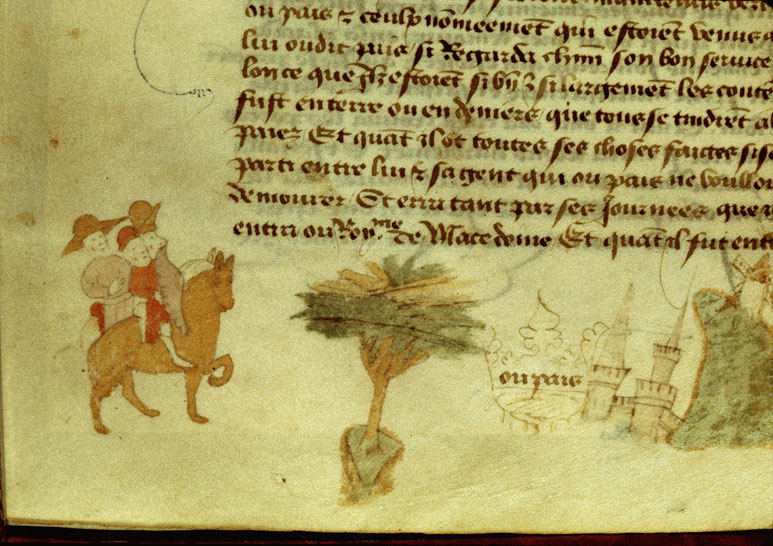 ou pais & ceulx nõmeemẽt qui estoient venus a
lui oudit pais si Regarda chũn son bon seruice
lon ce que Ilz estoiẽt si bñ & si largement les conte
fust en terre ou en deniers que tous se tindrẽt a
paiez Et quãt il ot toutes ses choses faictes si se
parti entre lui & sa gent qui ou pais ne voull ou
demourer Et erra tant par ses Journees que
entra ou Royme de Macedoine Et quãt il fut ent
ou pais